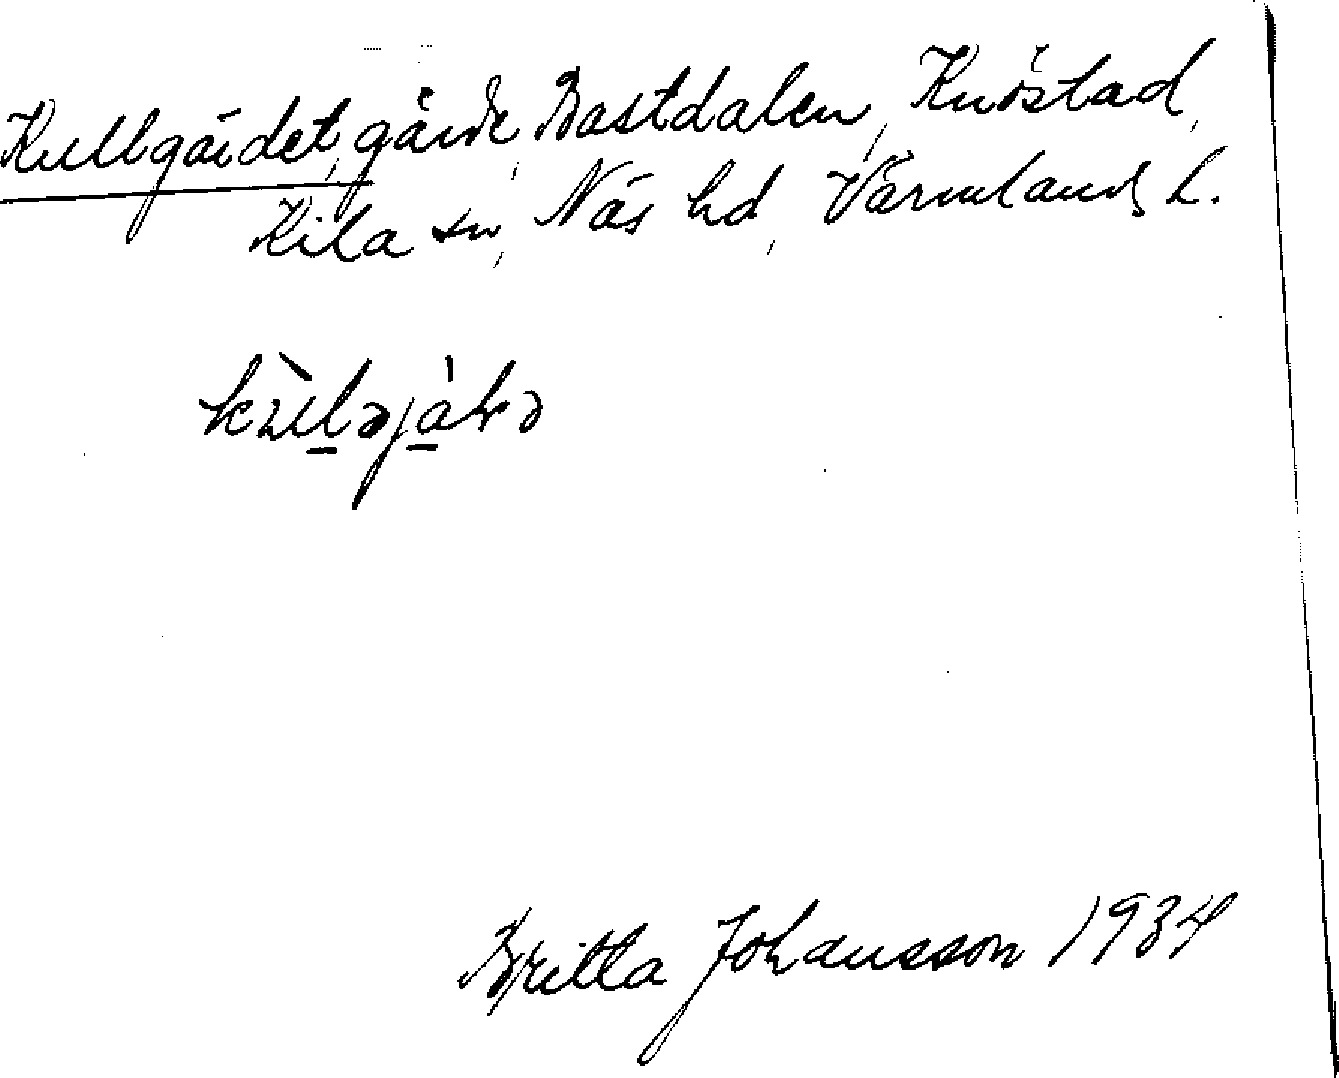 Kullgärdet, gärde, Bastdalen, Knöstad,
Kila sn, Näs hd, Värmlands l.
Britta Johansson 1934